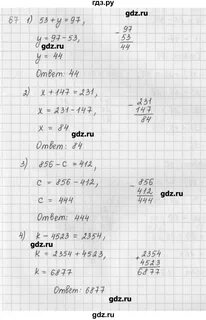 гдз.ру
67 1) 53 + y = 97,
y = 97 - 53,
y = 44
- 97
53
44
Ответ: 44
2) x + 147 = 231,
x = 231 - 147,
x = 84
- 231
147
84
Ответ: 84
3) 856 - c = 412,
c = 856 - 412,
c = 444
- 856
412
444
Ответ: 444
4) k - 4523 = 2354,
k = 2354 + 4523,
k = 6877
+ 2354
4523
6877
Ответ: 6877